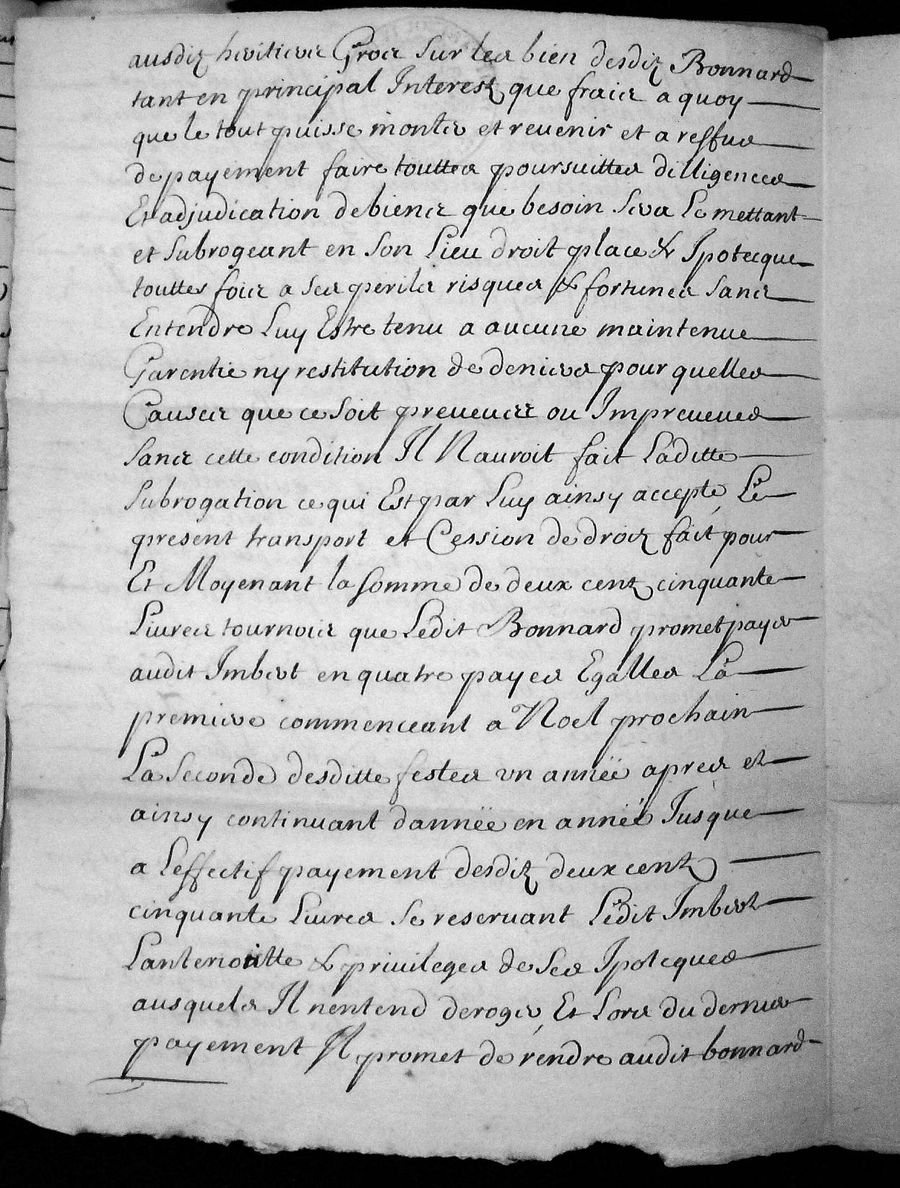 ausdiz heritiers Gros sur les bien desdiz Bonnard
tant en principal Interestz que frais a quoy
que le tout puisse monter et revenir et a reffus
de payement faire touttes poursuittes dilligences
Et adjudication de biens que besoin sera Le mettant
et subrogeant en son Lieu droit place & Ipotecque
touttes fois a ses perils risques & fortunes sans
Entendre Luy Estre tenu a aucune maintenue
Garentie ny restitution de deniers pour quelles
Causes que ce soit preveues ou Impreveues
sans cette condition Il Nauroit fait Laditte
subrogation ce qui Est par Luy ainsy accepté Le
present transport et Cession de droiz fait pour
Et Moyenant la somme de deux centz cinquante
Livres tournois que Ledit Bonnard promet payer
audit Imbert en quatre payes Egalles La
premiere commenceant a Noel prochain
La seconde desditte festes un année apres et
ainsy continuant dannëe en année Jusque
a Leffectif payement desdiz deux centz
cinquante Livres se reservant Ledit Imbert
Lanterioritte & privileges de ses Ipotcques
ausquels Il nentend deroger Et Lors du dernier
payement Il promet de rendre audit bonnard